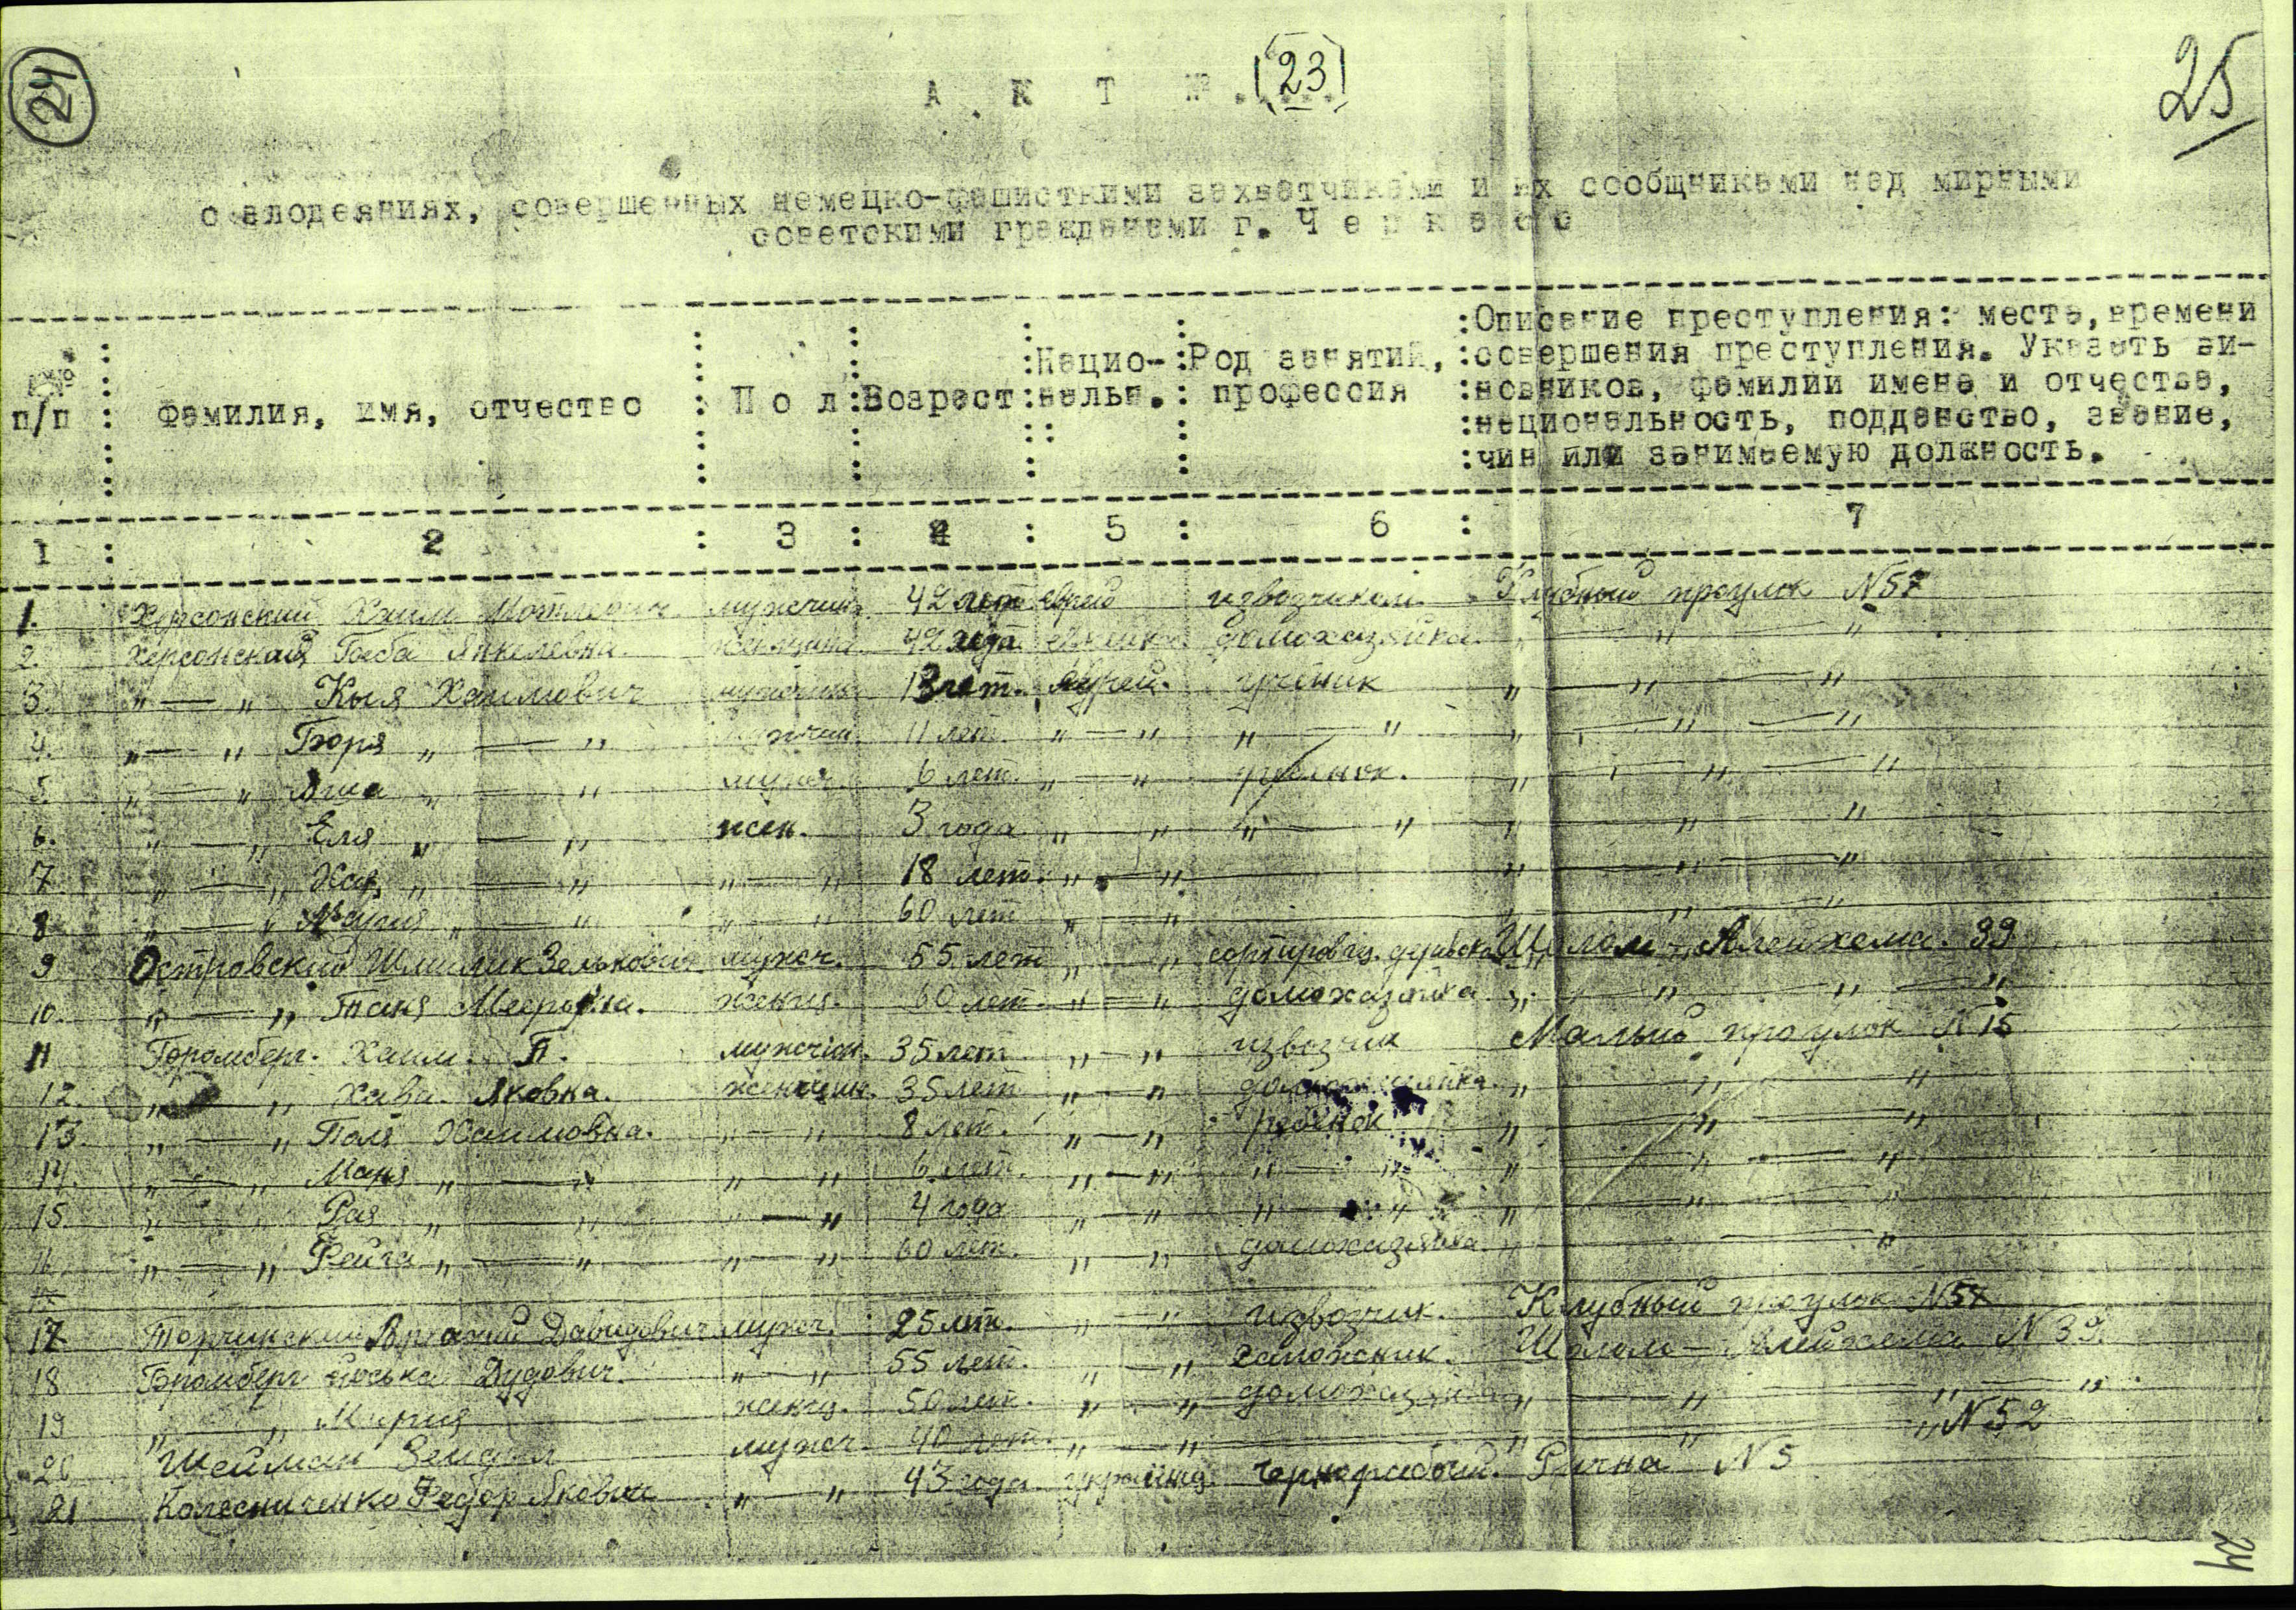 24
25
А К Т № (23)
о злодеяниях, совершенных немецко-фашисткими захватчиками и их сообщниками над мирными
советскими гражданами г. Ч е р к а с с
№ п/п : Фамилия, имя, отчество : П о л : Возраст : Нацио-нальн. : Род занятий, профессия : Описание преступления: места, времени
совершения преступления. Указать ви-
новников, фамилии имена и отчества,
национальность, подданство, звание,
чин или занимаемую должность.
1 : 2 : 3 : 4 : 5 : 6 : 7
1. Херсонский Хаим Мотлевич мужчин. 42 лет еврей извозчиком Клубный проулок N57
2. Херсонская Янкелевна женщина 42 года еврейка домохазяйка " — " — "
3. " — " Хаимович мужчин 13 лет. еврей. ученик " — " — "
4. " — " Боря " — " мужчин. 11 лет. " — " " — " " — " — "
5. " — " " — " мужч. 6 лет. " — " ребенок. " — " — "
6. " — " Еля " — " жен. 3 года " — " " — " " — " — "
7. " — " Хая " — " " — " 18 лет. " — " " — " — "
8 " — " " — " " — " 60 лет " — " " — " — "
9 Островский Шмилик Зелькович мужч. 55 лет " — " Шолом-Алейхема. 39
10. " — " Таня Мееровна. женщ. 60 лет. " — " домохазяйка " — " — "
11 Бромберг. Хаим. П. мужчин. 35 лет " — " извозчик Малый проулок N15
12. " — " Хава Яковка. женщин. 35 лет " — " " — " — "
13. " — " Поля Хаимовка. " — " 8 лет. " — " ребенок " — " — "
14. " — " Маня " — " " — " 6 лет. " — " " — " " — " — "
15. " — " Рая " — " " — " 4 года " — " " — " " — " — "
16. " — " Фейга " — " " — " 60 лет. " — " домохазяйка " — "
17 Давидович мужч. 25 лет. " — " извозчик. Клубный проулок N57
18 Бромберг Йоська Дудович. " — " 55 лет. " — " сапожник. Шолом-Алейхема N39.
19 " — " Мария женщ. 50 лет. " — " домохазяйка " — " — "
20 Шейман Зейдел мужч. 40 лет. " — " " — " — " N52
21 Колесниченко Федор Яковлич " — " 43 года украинц. чернорабочий. Рична N5
24